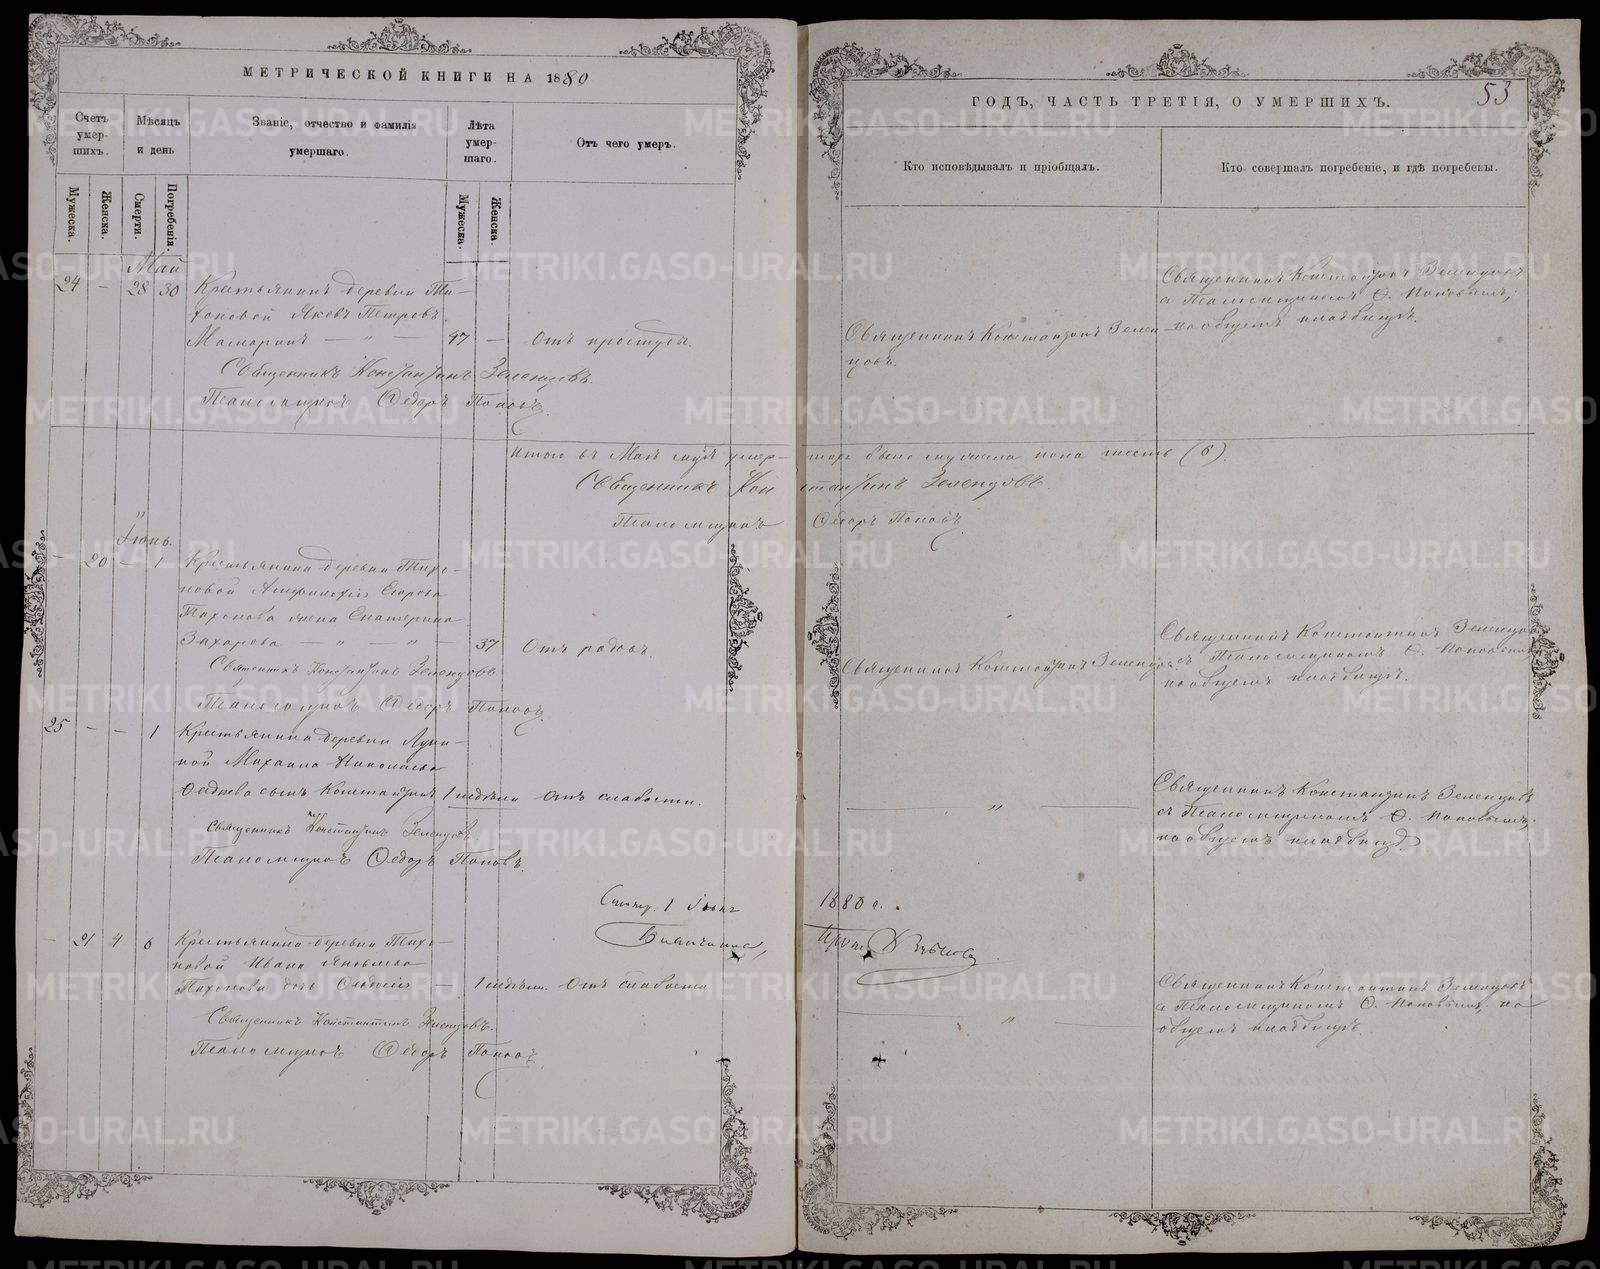 МЕТРИЧЕСКОЙ КНИГИ НА 1880
Счетъ умер-шихъ.
Мѣсяцъ и день
Званіе, отчество и фамилія умершаго.
Лѣта умер-шаго.
Отъ чего умеръ.
Мужеска.
Женска.
Смерти.
Погребенія.
Мужеска.
Женска.
Май
24 — 28 30 Крестьянинъ деревни Ти-
хоновой Яковъ Петровъ
— " — 47 — Отъ простуды.
Священникъ Константинъ Зеленцовъ.
Псаломщикъ Ѳедоръ Поповъ.
Итого въ Маѣ мѣс. умер-
Священникъ Кон
Псаломщикъ
Іюнь.
— 20 — 1 Крестьянина деревни Тихо-
новой Егорова
Тихонова жена Екатерина
Захарова — " — " — 37 Отъ родовъ.
Священникъ Константинъ Зеленцовъ
Псаломщикъ Ѳедоръ Поповъ.
25 — — 1 Крестьянина деревни
Михаила Николаева
сынъ Константинъ 1 недѣли Отъ слабости.
Священникъ Константинъ Зеленцовъ
Псаломщикъ Ѳедоръ Поповъ.
1 Іюня
— 21 4 6 Крестьянина деревни Тихо-
новой Ивана Яковлева
Тихонова дочь Ѳеодосія — 1 недѣли Отъ слабости
Священникъ Константинъ Зеленцовъ.
Псаломщикъ Ѳедоръ Поповъ.
ГОДЪ, ЧАСТЬ ТРЕТІЯ, О УМЕРШИХЪ.
53
Кто исповѣдывалъ и пріобщалъ.
Кто совершалъ погребеніе, и гдѣ погребены.
Священникъ Константинъ Зеленцовъ
с Псаломщикомъ Ѳ. Поповымъ,
на общемъ кладбищѣ.
Священникъ Константинъ Зелен-
цовъ.
было мужеска пола шесть (6).
стантинъ Зеленцовъ.
Ѳедоръ Поповъ.
Священникъ Константинъ Зеленцо
съ Псаломщикомъ Ѳ. Поповымъ
на общемъ кладбищѣ.
Священникъ Константинъ Зеленцовъ
Священникъ Константинъ Зеленцовъ
съ Псаломщикомъ Ѳ. Поповымъ,
на общемъ кладбищѣ
— " —
1880 г.
Священникъ Константинъ Зеленцовъ
с Псаломщикомъ Ѳ. Поповымъ, на
общемъ кладбищѣ.
— " —
METRIKI.GASO-URAL.RU